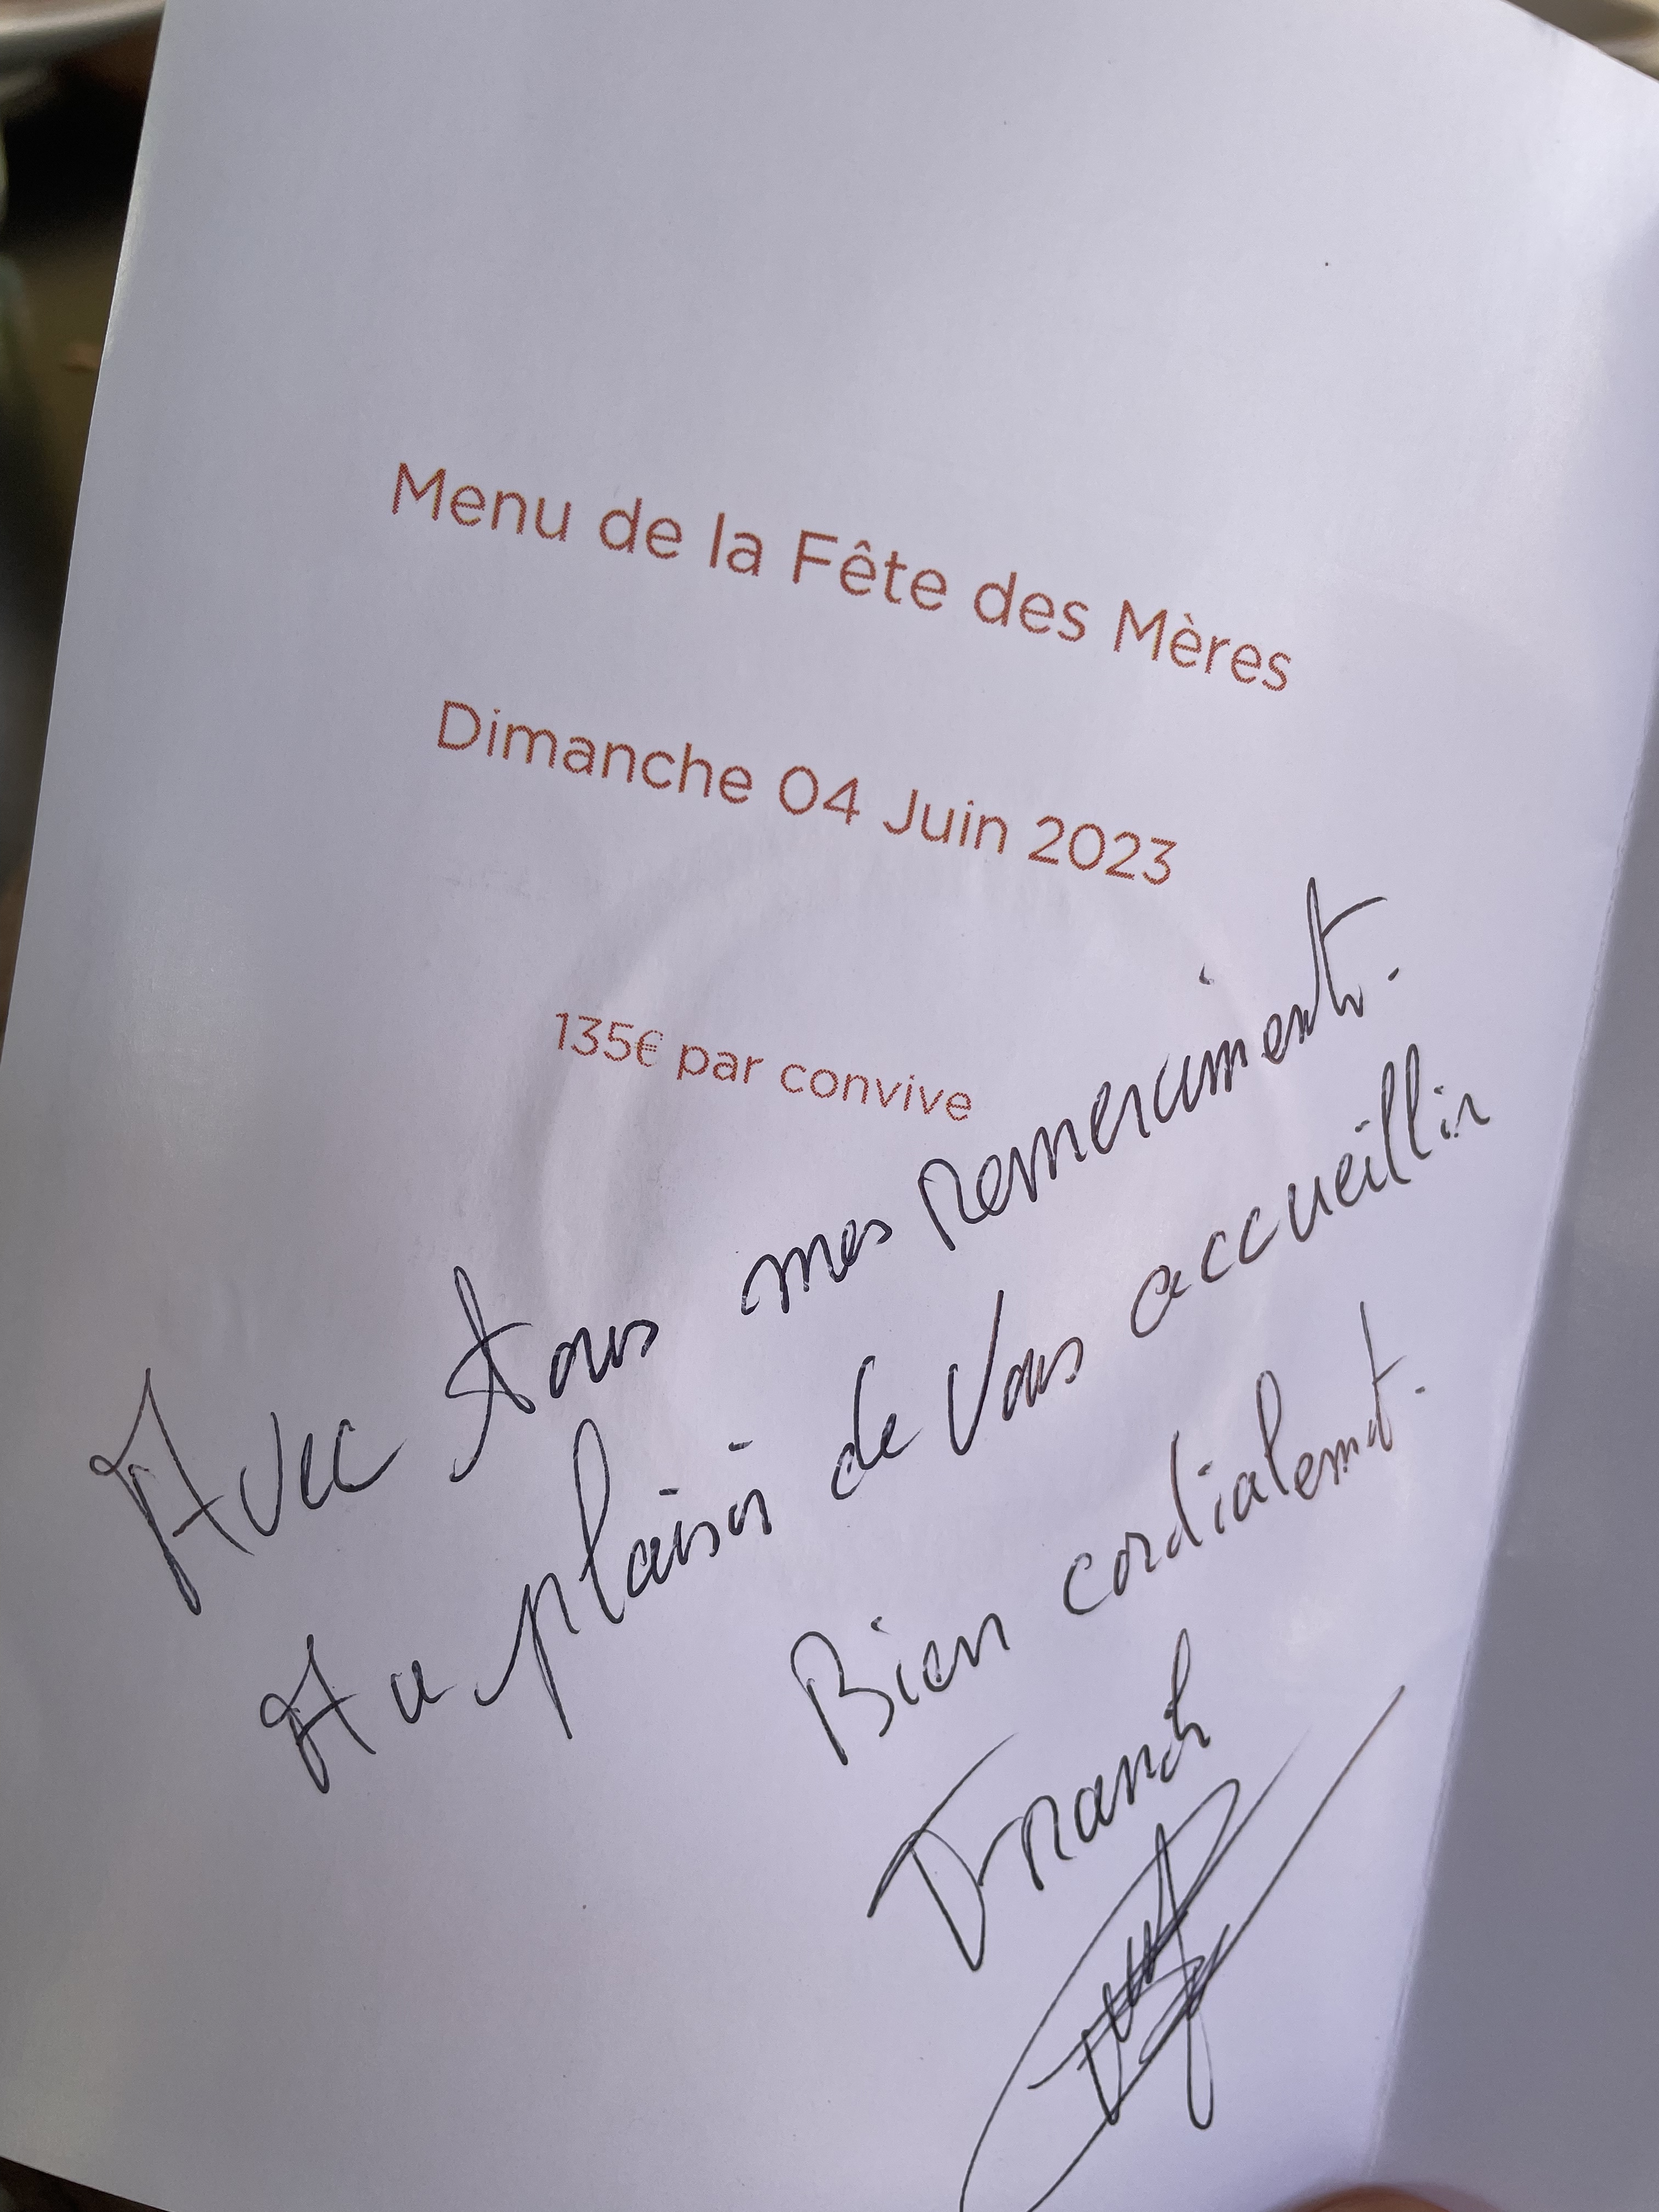 Menu de la Fête des Mères
Dimanche 04 Juin 2023
135€ par convive
Avec tous mes Remerciments.
Au plaisir de Vous accueillir
Bien cordialement.
Franck